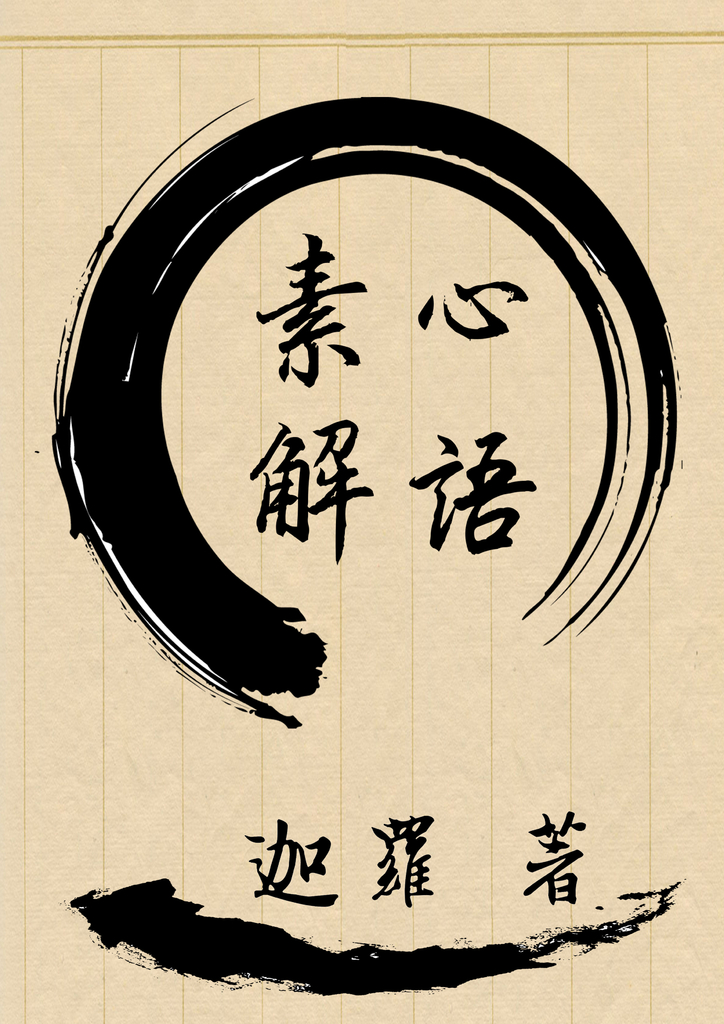 心語
素解
迦羅 著